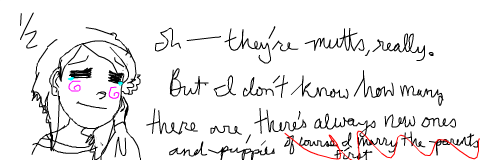 1/2
Oh — they're mutts, really.
But I don't know how many
there are, there's always new ones
and puppies of course I marry the parents
first